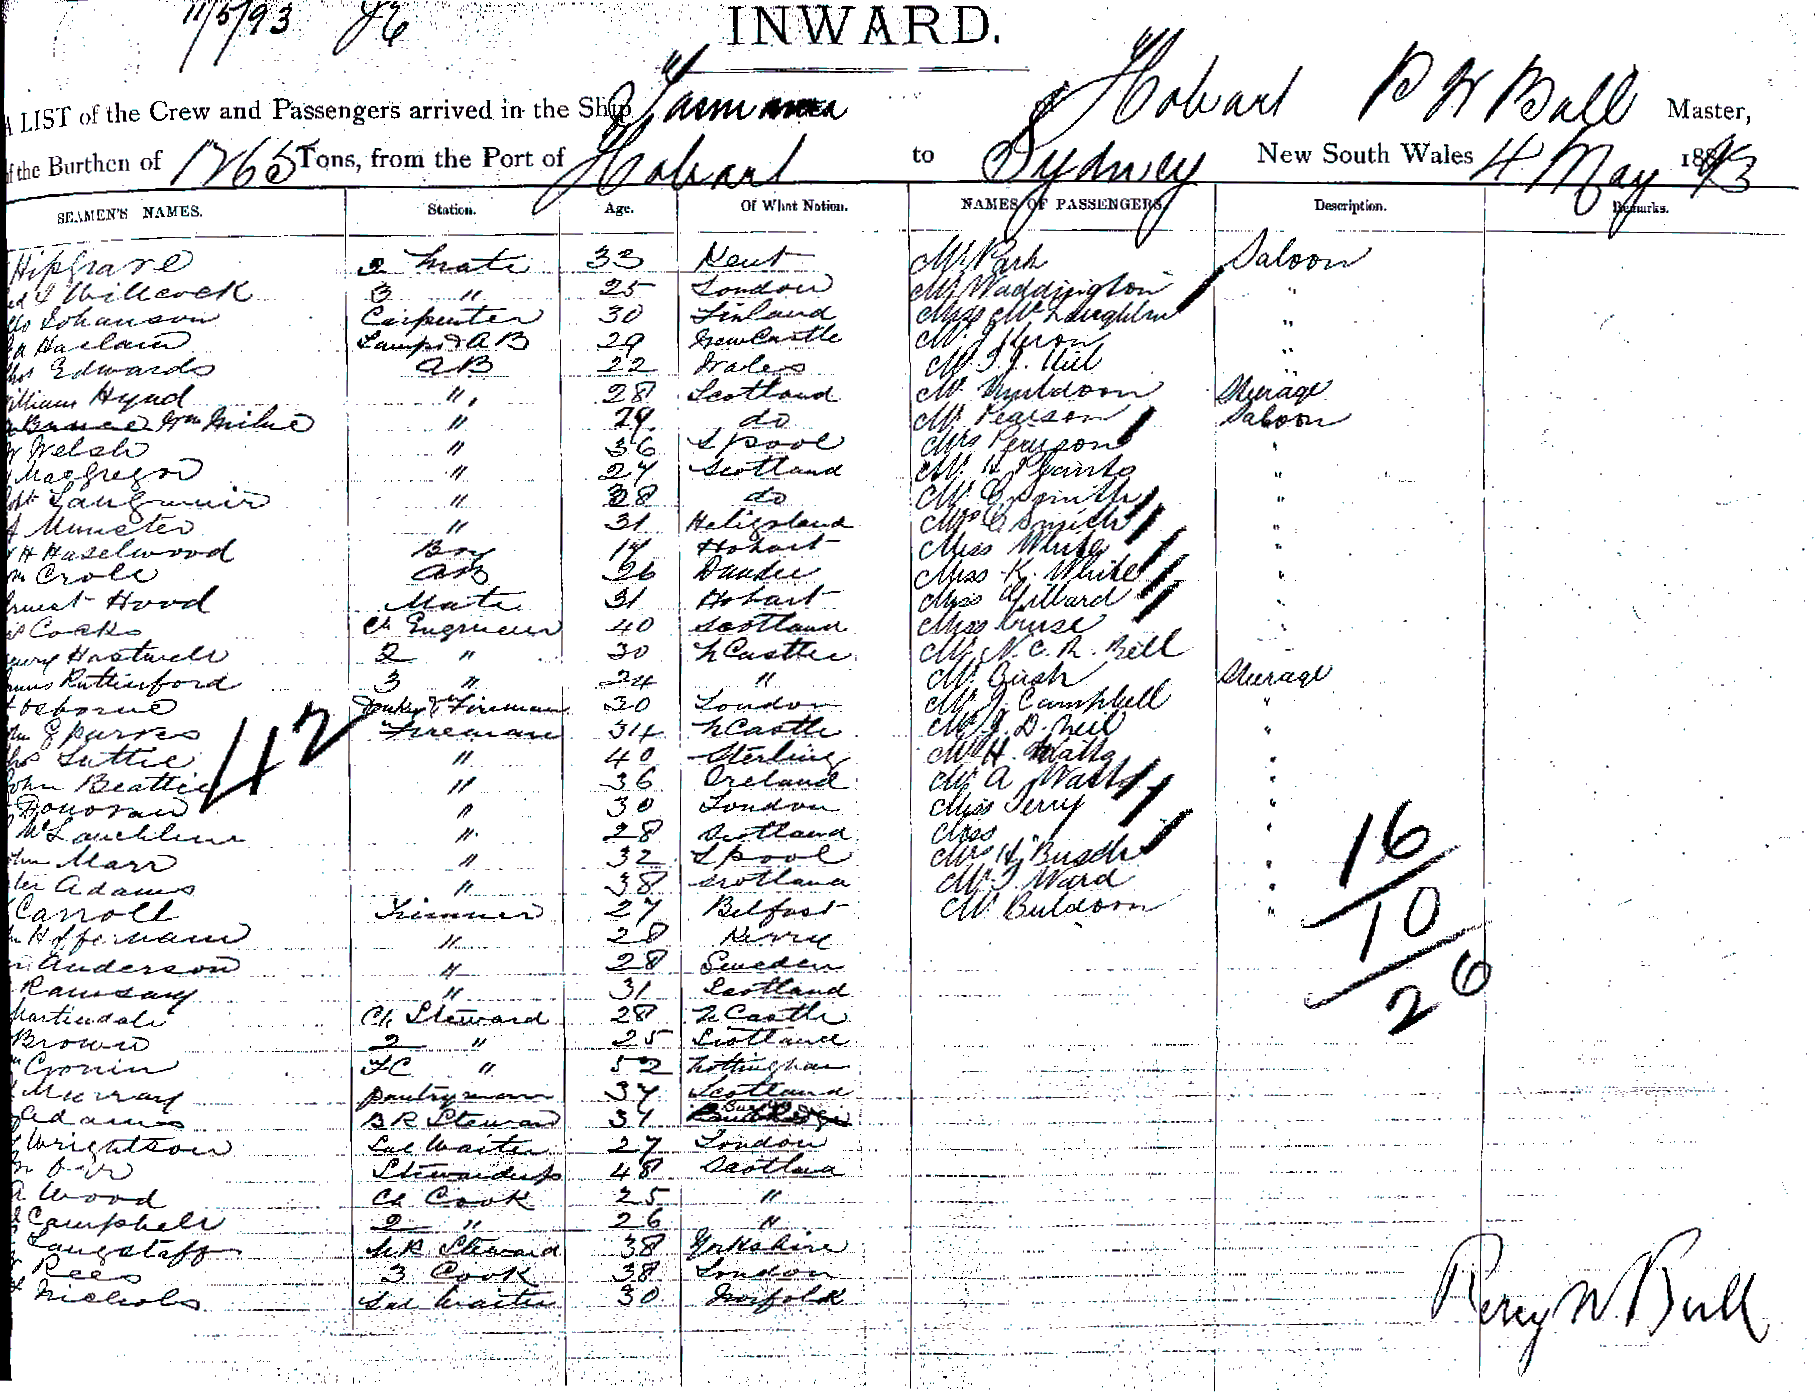 11/5/93 86
INWARD.
A LIST of the Crew and Passengers arrived in the Ship Tasmania of Hobart P W Bull Master,
of the Burthen of 1265 Tons, from the Port of Hobart to Sydney New South Wales 4 May 1893
SEAMEN'S NAMES. Station. Age. Of What Nation. NAMES OF PASSENGERS. Description. Remarks.
Hipgrave 2 Mate 33 Kent Mr Park Saloon
Willcock 3 " 25 London Mr Waddington "
Johanson Carpenter 30 Finland Miss McLaughlin "
Haslam Lamps & AB 29 New Castle Mr Heron "
Edwards AB 22 Wales Mr T. J. "
William Hynd " 28 Scotland Mr Muldoon Steerage
Wm Milne " 29 do Mr Pearson Saloon
Welsh " 36 L pool Mrs Pearson "
MacGregor " 27 Scotland Mr H "
Langmuir " 38 do Mr C Smith "
Munster " 31 Heligoland Mrs C Smith "
H Haselwood Boy 17 Hobart Miss White "
Croll AB 26 Dundee Miss K. White "
Ernest Hood Mate 31 Hobart Miss Gillard "
Cocks Ch Engineer 40 Scotland Miss "
Henry Hastwell 2 " 30 N Castle Mr N. C. R. Bell
James Rutherford 3 " 24 " Mr Steerage
Osborne Donkey & Fireman 30 London Mr J. Campbell "
Sparks Fireman 34 N Castle Mr J. D. Neil "
Suttie " 40 Sterling Mr H. Watts "
John Beattie " 36 Ireland Mr A Watts "
Donovan " 30 London Miss Terry "
McLauchlan " 28 Scotland Miss "
John Marr " 32 L pool Mr H. Busch "
Peter Adams " 38 Scotland Mr T Ward "
Carroll Trimmer 27 Belfast Mr Buldoon "
Heffernan " 28 Kerry
Anderson " 28 Sweden
Ramsay " 31 Scotland
Martindale Ch Steward 28 N Castle
Brown 2 " 25 Scotland
Cronin FC " 52 Nottingham
Murray Pantryman 37 Scotland
Adams BR Steward 31
Wrightson Sal Waiter 27 London
Orr Stewardess 48 Scotland
A Wood Ch Cook 25 "
Campbell 2 " 26 "
Langstaff Steward 38 Yorkshire
Rees 3 Cook 38 London
Nichols Sal Waiter 30 Norfolk
42
16
10
26
Percy W. Bull